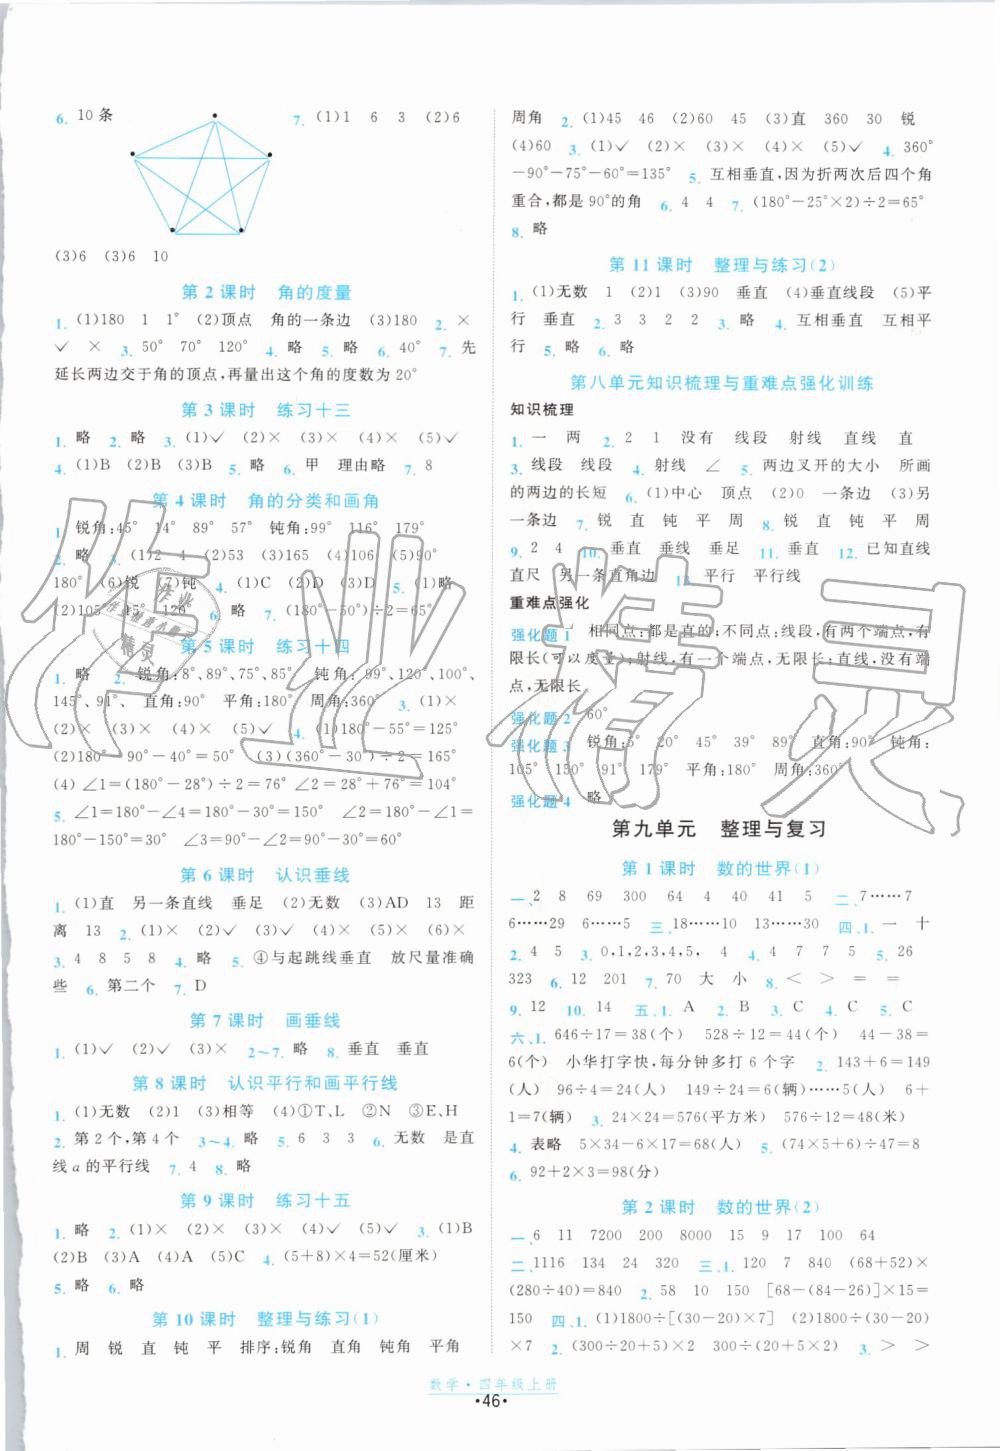 6. 10条
7. (1)1 6 3 (2)6
(3)6 (3)6 10
第2课时 角的度量
1. (1)180 1 1° (2)顶点 角的一条边 (3)180 2. ×
✓ × 3. 50° 70° 120° 4. 略 5. 略 6. 40° 7. 先
延长两边交于角的顶点,再量出这个角的度数为20°
第3课时 练习十三
1. 略 2. 略 3. (1)✓ (2)× (3)× (4)× (5)✓
4. (1)B (2)B (3)B 5. 略 6. 甲 理由略 7. 8
第4课时 角的分类和画角
1. 锐角:45° 14° 89° 57° 钝角:99° 116° 179°
2. 略 3. (1)2 4 (2)53 (3)165 (4)106 (5)90°
180° (6)锐 (7)钝 4. (1)C (2)D (3)D 5. (1)略
(2)105° 15° 129° 6. 略 7. (180°-50°)÷2=65°
第5课时 练习十四
1. 略 2. 锐角:8°、89°、75°、85° 钝角:120°、100°、
145°、91°、 直角:90° 平角:180° 周角:360° 3. (1)×
(2)× (3)× (4)× (5)✓ 4. (1)180°-55°=125°
(2)180°-90°-40°=50° (3)(360°-30°)÷2=165°
(4)∠1=(180°-28°)÷2=76° ∠2=28°+76°=104°
5. ∠1=180°-∠4=180°-30°=150° ∠2=180°-
∠1=180°-150°=30° ∠3=180°-∠2=180°-
30°=150°
第6课时 认识垂线
1. (1)直 另一条直线 垂足 (2)无数 (3)AD 13 距
离 13 2. (1)× (2)✓ (3)✓ (4)× (5)× (6)×
3. 4 8 5 8 4. 略 5. ④与起跳线垂直 放尺量准确
些 6. 第二个 7. D
第7课时 画垂线
1. (1)✓ (2)✓ (3)× 2~7. 略 8. 垂直 垂直
第8课时 认识平行和画平行线
1. (1)无数 (2)1 (3)相等 (4)①T、L ②N ③E、H
2. 第2个,第4个 3~4. 略 5. 6 3 3 6. 无数 是直
线a的平行线 7. 4 8. 略
第9课时 练习十五
1. 略 2. (1)× (2)× (3)× (4)✓ (5)✓ 3. (1)B
(2)B (3)A (4)A (5)C 4. (5+8)×4=52(厘米)
5. 略 6. 略
第10课时 整理与练习(1)
1. 周 锐 直 钝 平 排序:锐角 直角 钝角 平角
周角 2. (1)45 46 (2)60 45 (3)直 360 30 锐
(4)60 3. (1)✓ (2)× (3)× (4)× (5)✓ 4. 360°
-90°-75°-60°=135° 5. 互相垂直,因为折两次后四个角
重合,都是90°的角 6. 4 4 7. (180°-25°×2)÷2=65°
8. 略
第11课时 整理与练习(2)
1. (1)无数 1 (2)1 (3)90 垂直 (4)垂直线段 (5)平
行 垂直 2. 3 3 2 2 3. 略 4. 互相垂直 互相平
行 5. 略 6. 略
第八单元知识梳理与重难点强化训练
知识梳理
1. 一 两 2. 2 1 没有 线段 射线 直线 直
3. 线段 线段 4. 射线 ∠ 5. 两边叉开的大小 所画
的两边的长短 6. (1)中心 顶点 (2)0 一条边 (3)另
一条边 7. 锐 直 钝 平 周 8. 锐 直 钝 平 周
9. 2 4 10. 垂直 垂线 垂足 11. 垂直 12. 已知直线
直尺 另一条直角边 13. 平行 平行线
重难点强化
强化题1 相同点:都是直的;不同点:线段,有两个端点,有
限长(可以度量);射线,有一个端点,无限长;直线,没有端
点,无限长
强化题2 60°
强化题3 锐角:5° 20° 45° 39° 89° 直角:90° 钝角:
105° 150° 91° 179° 平角:180° 周角:360°
强化题4 略
第九单元 整理与复习
第1课时 数的世界(1)
一、2 8 69 300 64 4 40 41 5 二、7……7
6……29 6……5 三、18……10 13……30 四、1. 一 十
2. 4 5 3. 0,1,2,3,4,5, 4 4. 4 7 7 5 5. 26
323 6. 12 201 7. 70 大 小 8. < > = <
9. 12 10. 14 五、1. A 2. B 3. C 4. C 5. C
六、1. 646÷17=38(个) 528÷12=44(个) 44-38=
6(个) 小华打字快,每分钟多打6个字 2. 143+6=149
(人) 96÷4=24(人) 149÷24=6(辆)……5(人) 6+
1=7(辆) 3. 24×24=576(平方米) 576÷12=48(米)
4. 表略 5×34-6×17=68(人) 5. (74×5+6)÷47=8
6. 92+2×3=98(分)
第2课时 数的世界(2)
一、6 11 7200 200 8000 15 9 17 100 64
二、1116 134 24 320 三、1. 120 7 840 (68+52)×
(280÷40)=840 2. 58 10 150 [68-(84-26)]×15=
150 四、1. (1)1800÷[(30-20)×7] (2)1800÷(30-20)×
7 2. (300÷20+5)×2 300÷(20+5)×2 3. > >
数学·四年级上册
·46·
作业精灵